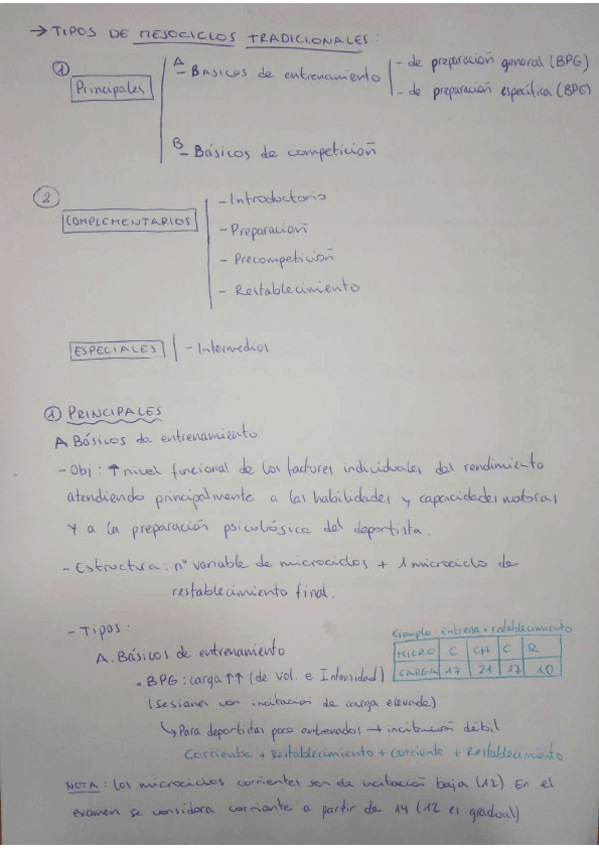 → TIPOS DE MESOCICLOS TRADICIONALES:
① Principales
A – BASICOS de entrenamiento
– de preparación general (BPG)
– de preparación específica (BPE)
B – Básicos de competición
② COMPLEMENTARIOS
– Introductorio
– Preparación
– Precompetición
– Restablecimiento
ESPECIALES – Intermedios
① PRINCIPALES
A Básicos de entrenamiento
– Obj: ↑ nivel funcional de los factores individuales del rendimiento
atendiendo principalmente a las habilidades y capacidades motoras
y a la preparación psicológica del deportista.
– Estructura: nº variable de microciclos + 1 microciclo de
restablecimiento final.
– Tipos:
Ejemplo: entrena + restablecimiento
MICRO C CH C R
CARGA 17 21 17 10
A. Básicos de entrenamiento
. BPG: carga ↑↑ (de vol. e Intensidad)
(sesiones con incitación de carga elevada)
↳ Para deportistas poco entrenados → incitación débil
Corriente + Restablecimiento + corriente + Restablecimiento
NOTA: los microciclos corrientes son de incitación baja (12) En el
examen se considera corriente a partir de 14 (12 es gradual)